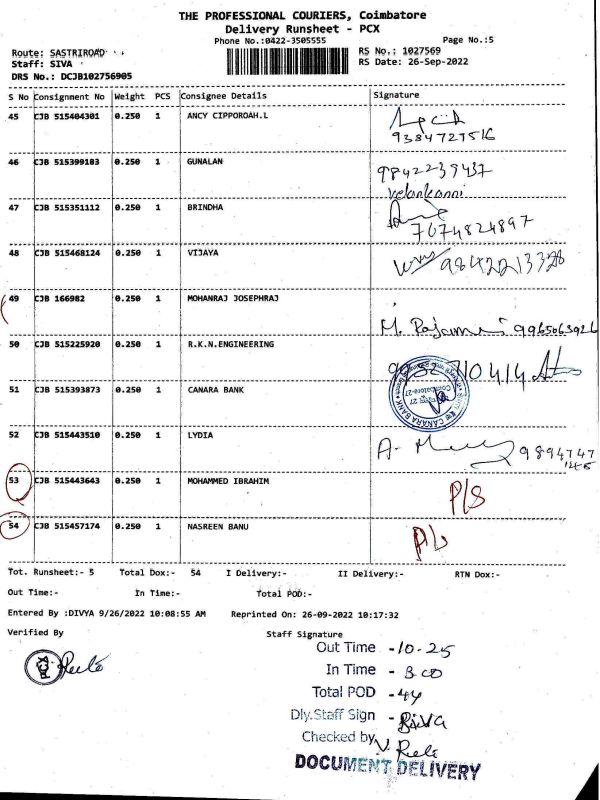 THE PROFESSIONAL COURIERS, Coimbatore
Delivery Runsheet - PCX
Phone No.:0422-3505555 Page No.:5
Route: SASTRIROAD
Staff: SIVA
DRS No.: DCJB102756905
RS No.: 1027569
RS Date: 26-Sep-2022
S No Consignment No Weight PCS Consignee Details Signature
45 CJB 515404301 0.250 1 ANCY CIPPOROAH.L
9384727516
46 CJB 515399183 0.250 1 GUNALAN 9842239437
velankanni
47 CJB 515351112 0.250 1 BRINDHA
7674824897
48 CJB 515468124 0.250 1 VIJAYA 9842213328
49 CJB 166982 0.250 1 MOHANRAJ JOSEPHRAJ
50 CJB 515225920 0.250 1 R.K.N.ENGINEERING
51 CJB 515393873 0.250 1 CANARA BANK
CANARA BANK
52 CJB 515443510 0.250 1 LYDIA
9894747
53 CJB 515443643 0.250 1 MOHAMMED IBRAHIM P/S
54 CJB 515457174 0.250 1 NASREEN BANU
Tot. Runsheet:- 5 Total Dox:- 54 I Delivery:- II Delivery:- RTN Dox:-
Out Time:- In Time:- Total POD:-
Entered By :DIVYA 9/26/2022 10:08:55 AM Reprinted On: 26-09-2022 10:17:32
Verified By Staff Signature
Out Time -10-25
In Time - 3 00
Total POD -44
Dly.Staff Sign - SIVA
Checked by
DOCUMENT DELIVERY